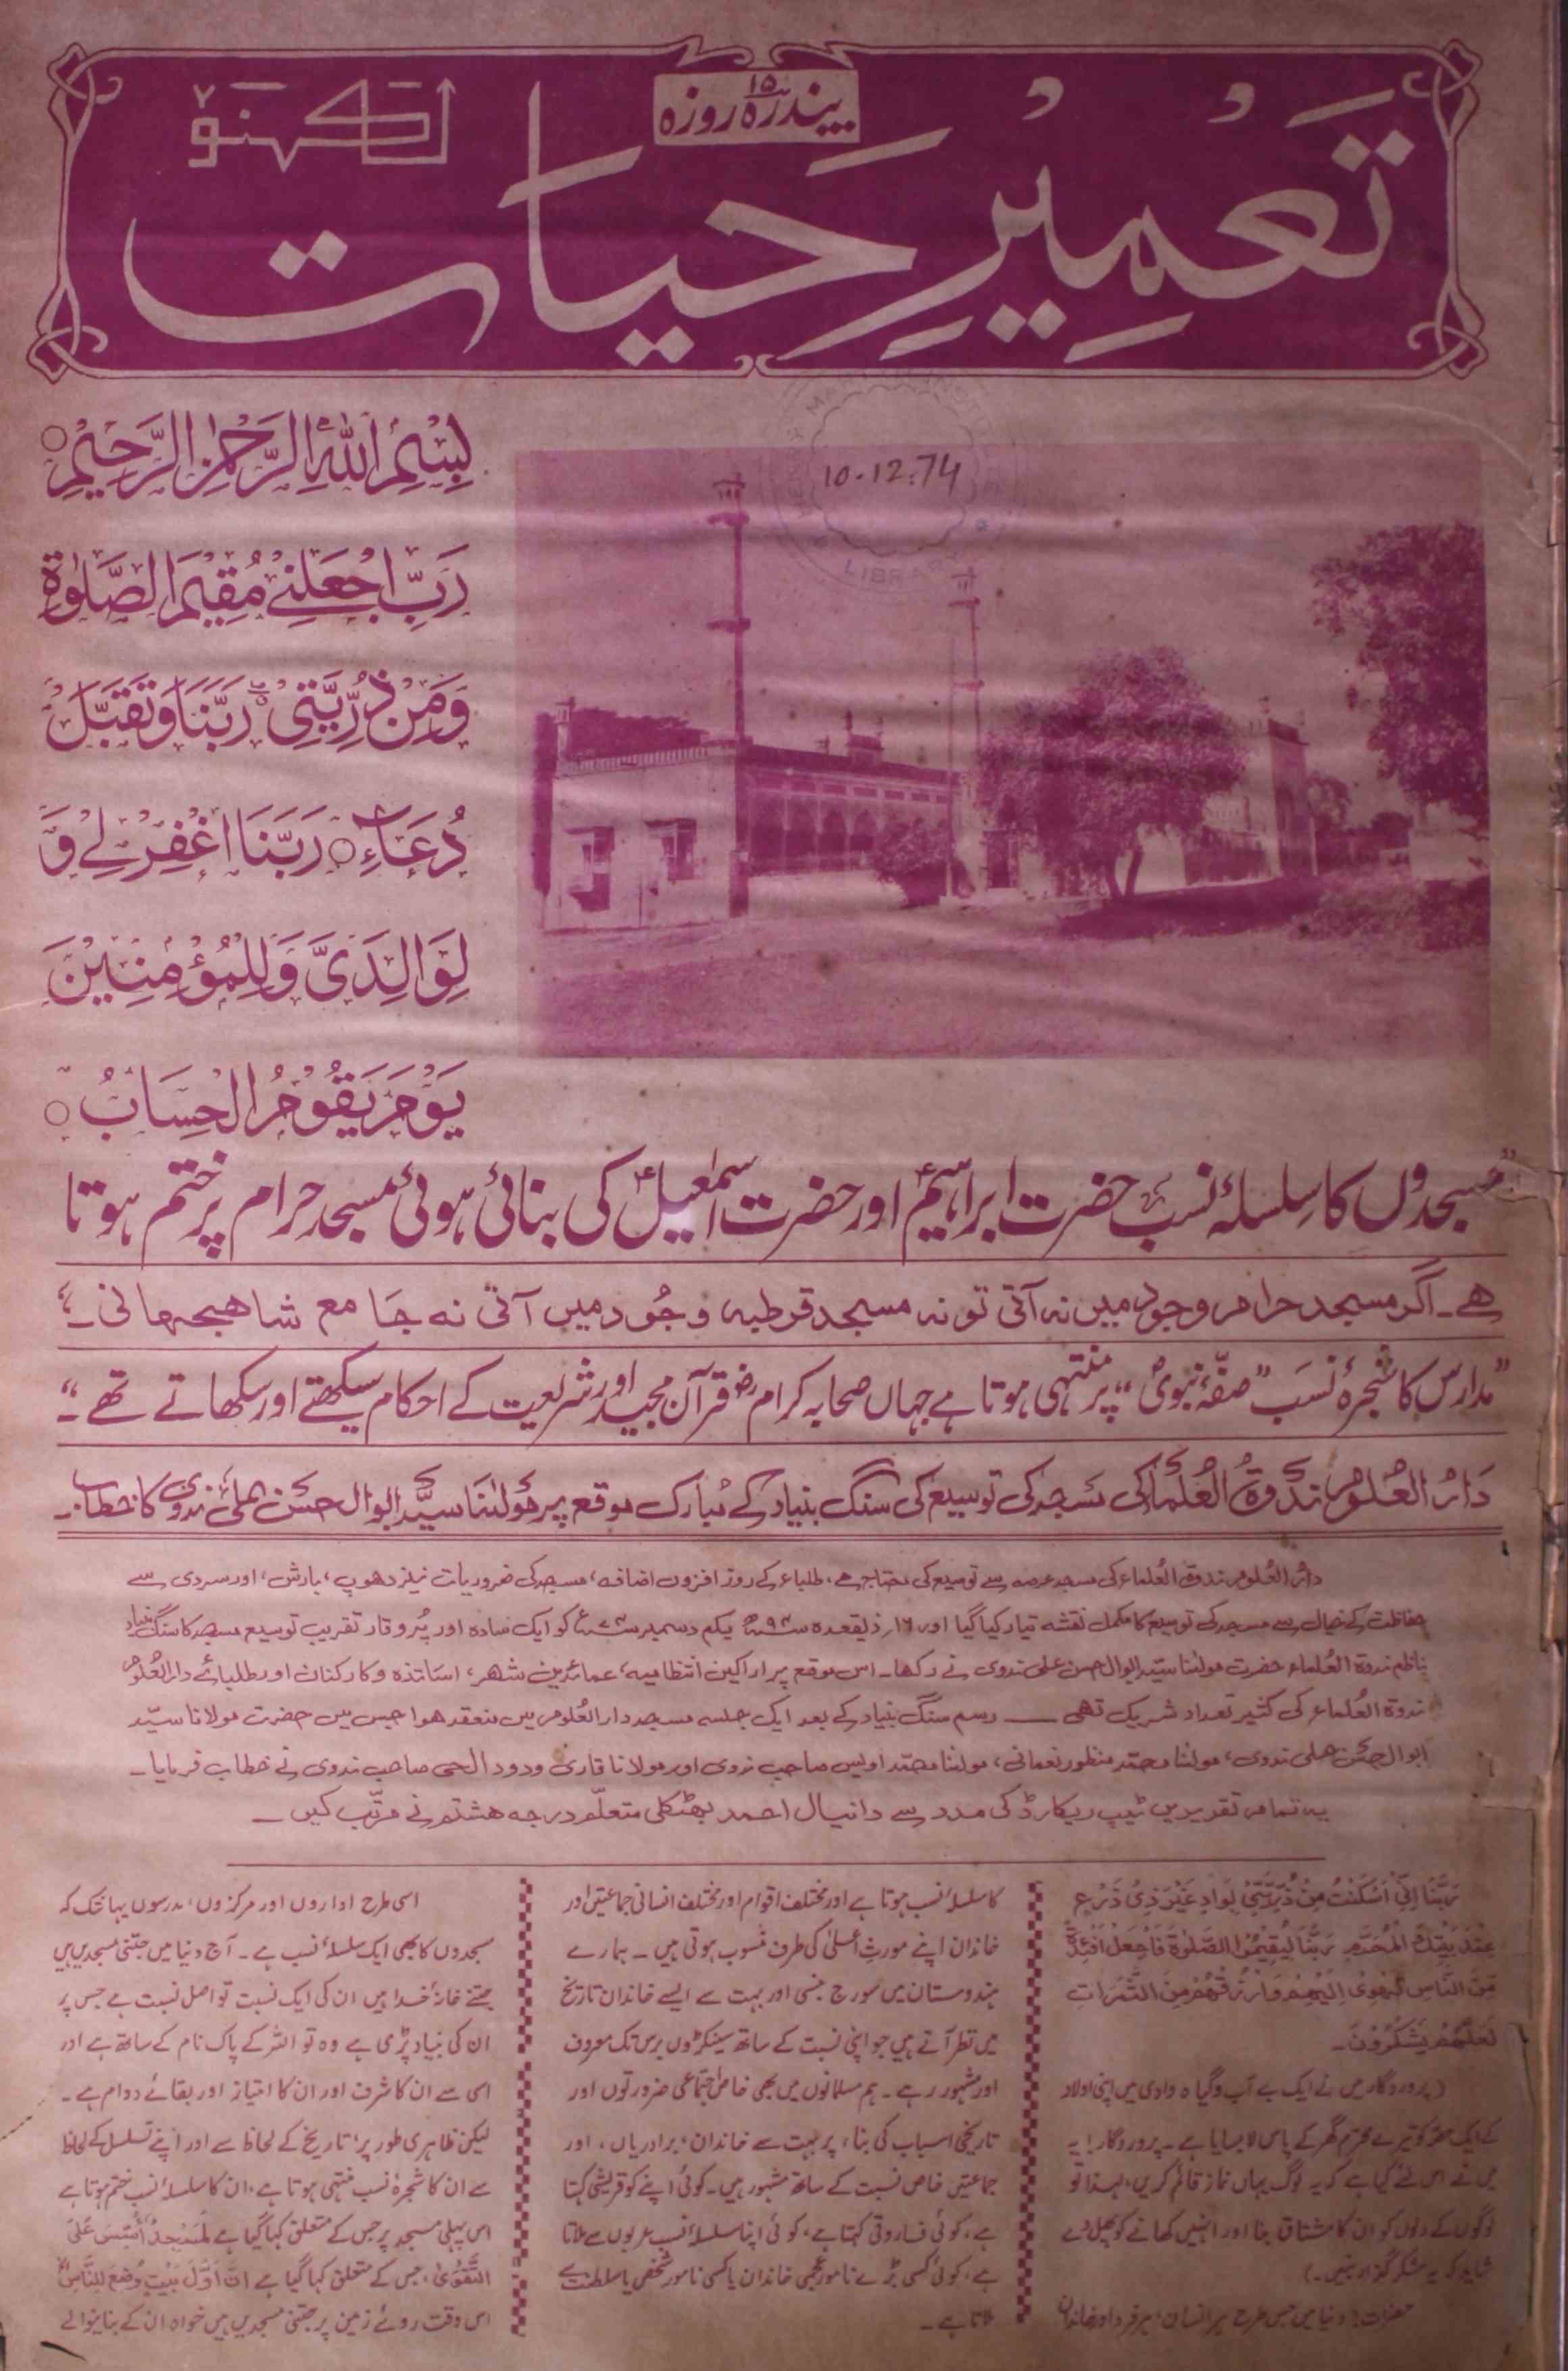 پندرہ ۱۵ روزہ
لکھنؤ
تعمیرِ حیات
10.12.74
LIBRARY
بِسْمِ اللّٰهِ الرَّحْمٰنِ الرَّحِيْمِ
رَبِّ اجْعَلْنِيْ مُقِيْمَ الصَّلٰوةِ
وَمِنْ ذُرِّيَّتِيْ رَبَّنَا وَتَقَبَّلْ
دُعَآءِ رَبَّنَا اغْفِرْ لِيْ وَ
لِوَالِدَيَّ وَلِلْمُؤْمِنِيْنَ
يَوْمَ يَقُوْمُ الْحِسَابُ
”مسجدوں کا سلسلۂ نسب حضرت ابراہیمؑ اور حضرت اسمٰعیلؑ کی بنائی ہوئی مسجد حرام پر ختم ہوتا
ہے۔ اگر مسجد حرام وجود میں نہ آتی تو نہ مسجد قرطبہ وجود میں آتی نہ جامع شاہجہانی۔“
”مدارس کا شجرۂ نسب ”صفّۂ نبویؐ“ پر منتہی ہوتا ہے جہاں صحابہ کرامؓ قرآن مجید اور شریعت کے احکام سیکھتے اور سکھاتے تھے۔“
دارُ العُلوم ندوۃُ العُلماء کی مسجد کی توسیع کی سنگ بنیاد کے مُبارک موقع پر مولٰنا سیّد ابوالحسن علی ندوی کا خطاب۔
دارُ العُلوم ندوۃ العُلماء کی مسجد عرصہ سے توسیع کی محتاج ہے، طلباء کے روز افزوں اضافہ، مسجد کی ضروریات نیز دھوپ، بارش، اور سردی سے
حفاظت کے خیال سے مسجد کی توسیع کا مکمل نقشہ تیار کیا گیا اور ۱۶؍ ذیقعدہ ۹۴ھ یکم دسمبر ۷۴ء کو ایک سادہ اور پُروقار تقریب توسیع مسجد کا سنگ بنیاد
ناظم ندوۃ العُلماء حضرت مولٰنا سیّد ابوالحسن علی ندوی نے رکھا۔ اس موقع پر اراکین انتظامیہ، عمائدین شہر، اساتذہ و کارکنان اور طلبائے دارالعُلوم
ندوۃ العُلماء کی کثیر تعداد شریک تھی ــــ رسم سنگ بنیاد کے بعد ایک جلسہ مسجد دارالعُلوم میں منعقد ہوا جس میں حضرت مولانا سیّد
ابوالحسن علی ندوی، مولٰنا محمّد منظور نعمانی، مولٰنا محمّد اویس صاحب ندوی اور مولانا قاری ودود الحی صاحب ندوی نے خطاب فرمایا۔
یہ تمام تقریریں ٹیپ ریکارڈ کی مدد سے دانیال احمد بھٹکلی متعلّم درجہ ہشتم نے مرتّب کیں۔
رَبَّنَا اِنِّيْ اَسْكَنْتُ مِنْ ذُرِّيَّتِيْ بِوَادٍ غَيْرِ ذِيْ زَرْعٍ
عِنْدَ بَيْتِكَ الْمُحَرَّمِ رَبَّنَا لِيُقِيْمُوا الصَّلٰوةَ فَاجْعَلْ اَفْئِدَةً
مِّنَ النَّاسِ تَهْوِيْ اِلَيْهِمْ وَارْزُقْهُمْ مِّنَ الثَّمَرَاتِ
لَعَلَّهُمْ يَشْكُرُوْنَ۔
(پروردگار میں نے ایک بے آب و گیاہ وادی میں اپنی اولاد
کے ایک حصّہ کو تیرے محترم گھر کے پاس لا بسایا ہے۔ پروردگار! یہ
میں نے اس لئے کیا ہے کہ یہ لوگ یہاں نماز قائم کریں، لہذا تو
لوگوں کے دلوں کو ان کا مشتاق بنا اور انہیں کھانے کو پھل دے
شاید کہ یہ شکر گزار بنیں۔)
حضرات! دنیا میں جس طرح ہر انسان، ہر فرد اور خاندان
کا سلسلۂ نسب ہوتا ہے اور مختلف اقوام اور مختلف انسانی جماعتیں اور
خاندان اپنے مورث اعلیٰ کی طرف منسوب ہوتی ہیں۔ ہمارے
ہندوستان میں سورج بنسی اور بہت سے ایسے خاندان تاریخ
میں نظر آتے ہیں جو اپنی نسبت کے ساتھ سینکڑوں برس تک معروف
اور مشہور رہے۔ ہم مسلمانوں میں بھی خاص اجتماعی ضرورتوں اور
تاریخی اسباب کی بناء پر بہت سے خاندان، برادریاں، اور
جماعتیں خاص نسبت کے ساتھ مشہور ہیں۔ کوئی اپنے کو قریشی کہتا
ہے، کوئی فاروقی کہتا ہے، کوئی اپنا سلسلۂ نسب عربوں سے ملاتا
ہے، کوئی کسی بڑے نامور عجمی خاندان یا کسی نامور شخص یا سلطنت سے
ملاتا ہے۔
اسی طرح اداروں اور مرکزوں، مدرسوں یہاں تک کہ
مسجدوں کا بھی ایک سلسلۂ نسب ہے۔ آج دنیا میں جتنی مسجدیں ہیں
جتنے خانۂ خدا ہیں ان کی ایک نسبت تو اصل نسبت ہے جس پر
ان کی بنیاد پڑی ہے وہ تو اللہ کے پاک نام کے ساتھ ہے اور
اسی سے ان کا شرف اور ان کا امتیاز اور بقائے دوام ہے۔
لیکن ظاہری طور پر، تاریخ کے لحاظ سے اور اپنے تسلسل کے لحاظ
سے ان کا شجرۂ نسب منتہی ہوتا ہے، ان کا سلسلۂ نسب ختم ہوتا ہے
اس پہلی مسجد پر جس کے متعلق کہا گیا ہے لَمَسْجِدٌ اُسِّسَ عَلَى
التَّقْوٰى، جس کے متعلق کہا گیا ہے اِنَّ اَوَّلَ بَيْتٍ وُّضِعَ لِلنَّاسِ
اس وقت روئے زمین پر جتنی مسجدیں ہیں خواہ ان کے بنانیوالے